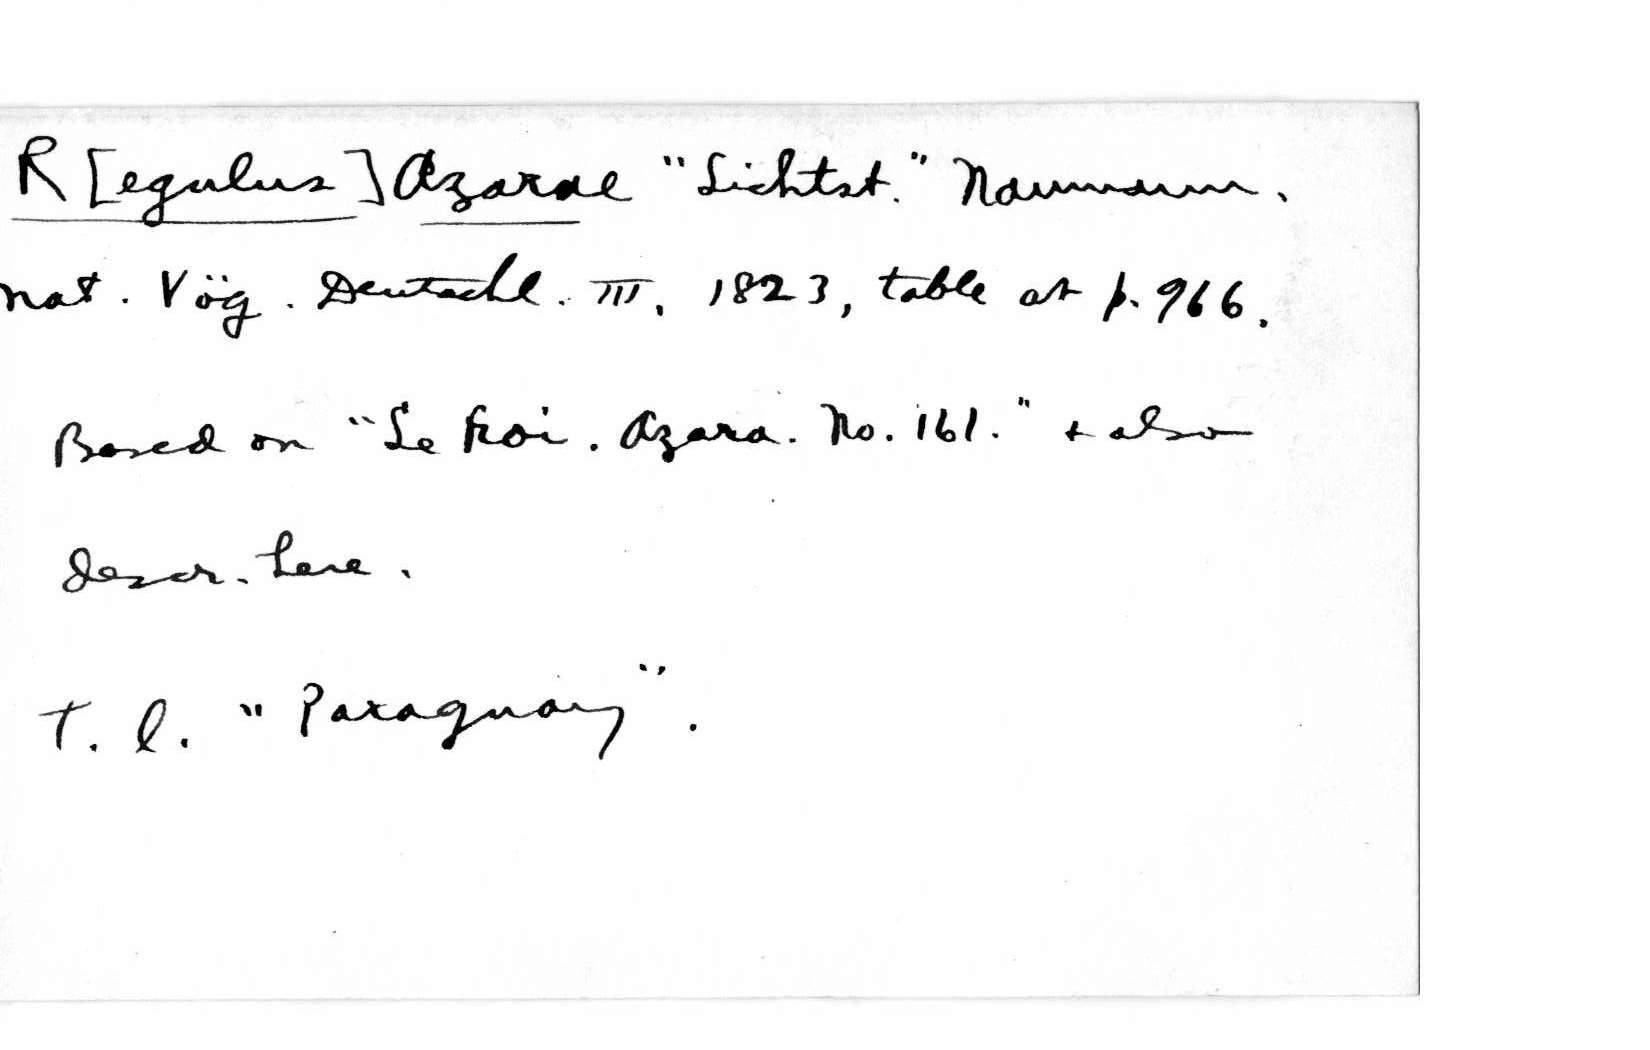 R[egulus] Azarae "Lichtst." Naumann.
nat. Vög. Deutschl. III, 1823, table at p. 966.
Based on "Le Roi. Azara. No. 161." + also
descr. here.
T. l. "Paraguay".